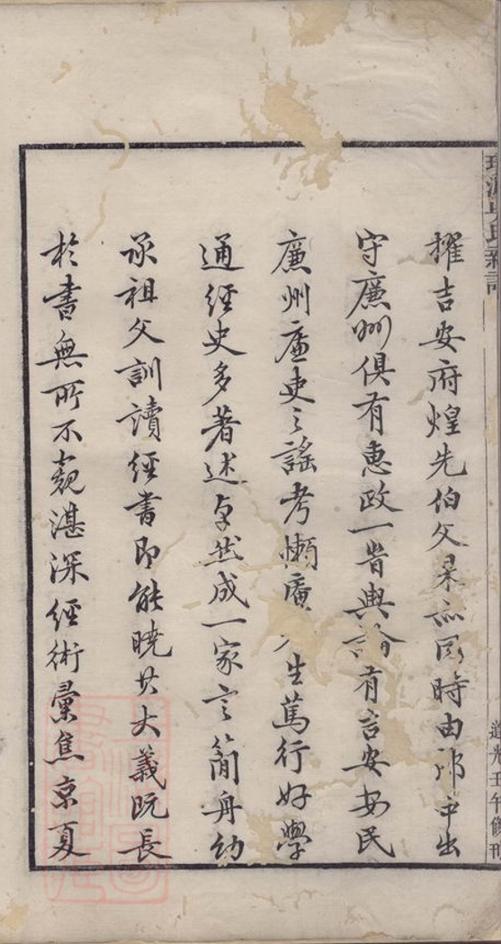 道光壬午修刊
擢吉安府煌先伯父同時由部中出
守廉州俱有惠政一輿論有吉安安民
廉州廉吏之謠考懶生篤行好學
通經史多著述卓然成一家言簡舟幼
承祖父訓讀經書即能曉其大義既長
於書無所不窺湛深經術彙焦京夏